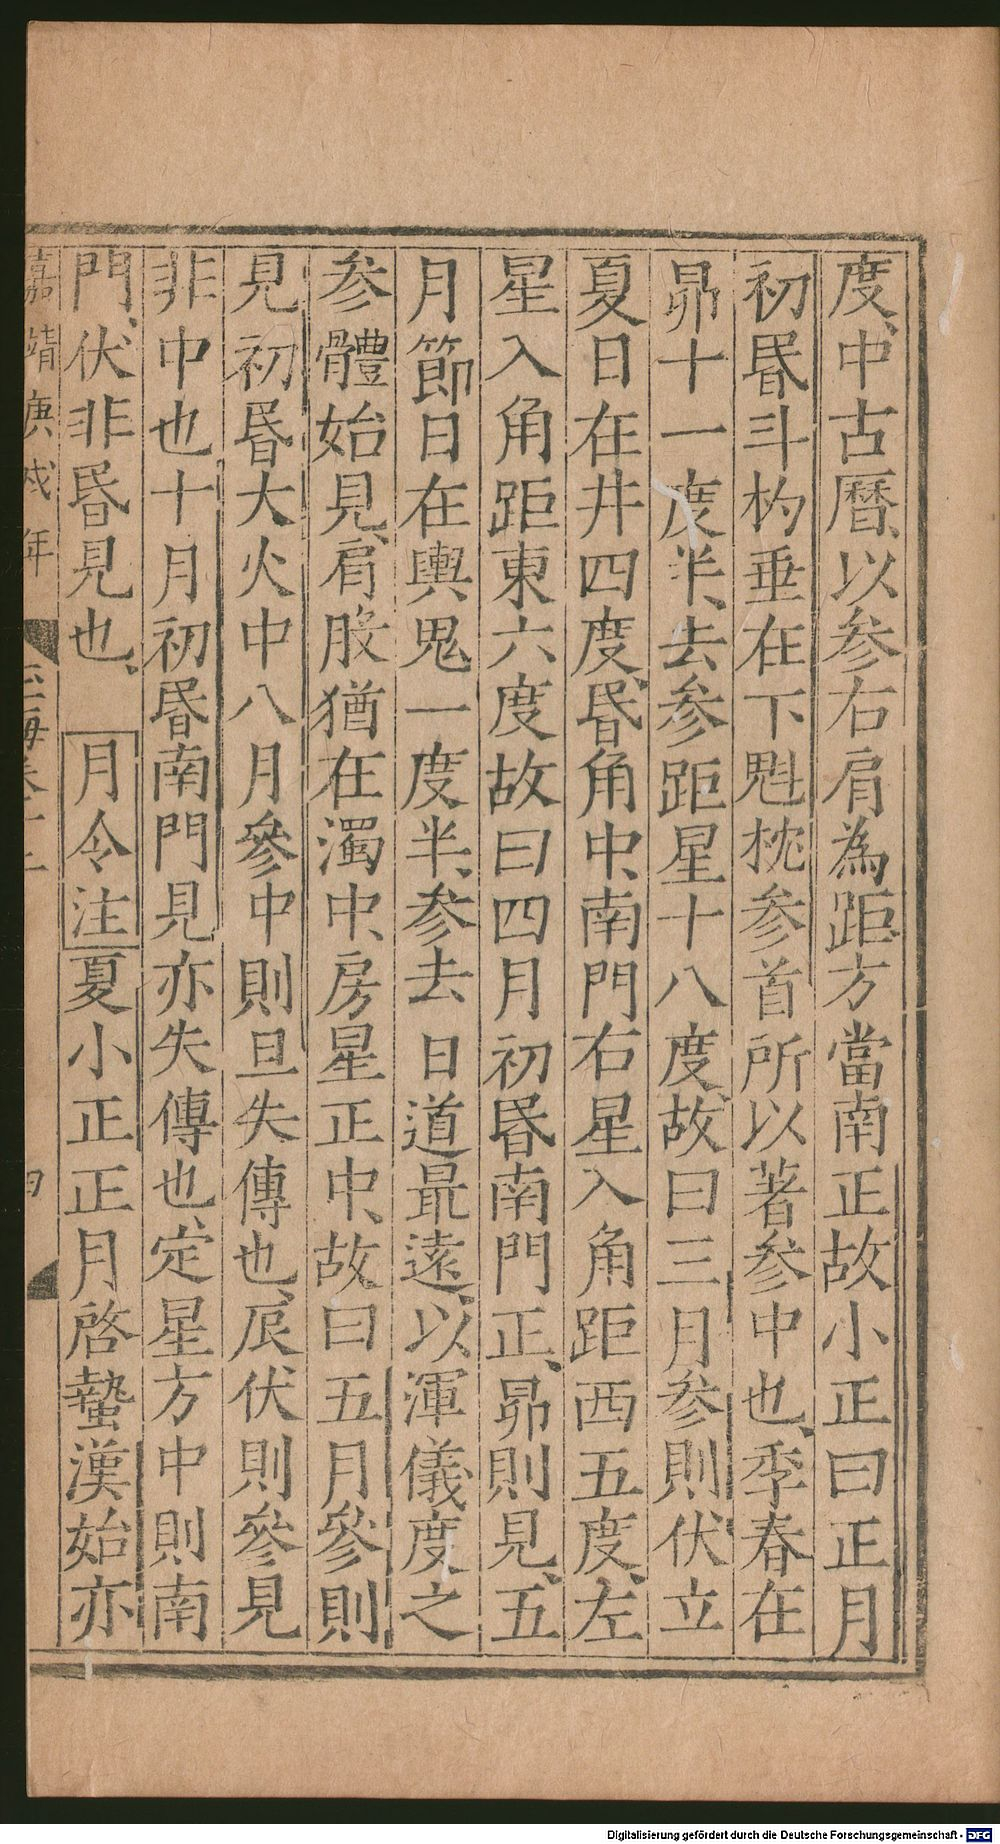 度、中古曆、以參右肩為距方當南正故小正曰正月
初昬斗杓垂在下魁枕參首所以著參中也、季春在
昴十一度半、去參距星十八度、故曰三月參則伏立
夏日在井四度、昬角中、南門右星入角距西五度、左
星入角距東六度故曰四月初昬南門正、昴則見、五
月節日在輿鬼一度半、參去日道最遠、以渾儀度之
參體始見、肩股猶在濁中、房星正中、故曰五月參則
見初昬大火中八月參中則旦失傳也、辰伏則參見
非中也十月初昬南門見亦失傳也、定星方中則南
門、伏非昬見也、 月令注夏小正正月啓蟄漢始亦
嘉靖庚戌年
Digitalisierung gefördert durch die Deutsche Forschungsgemeinschaft - DFG